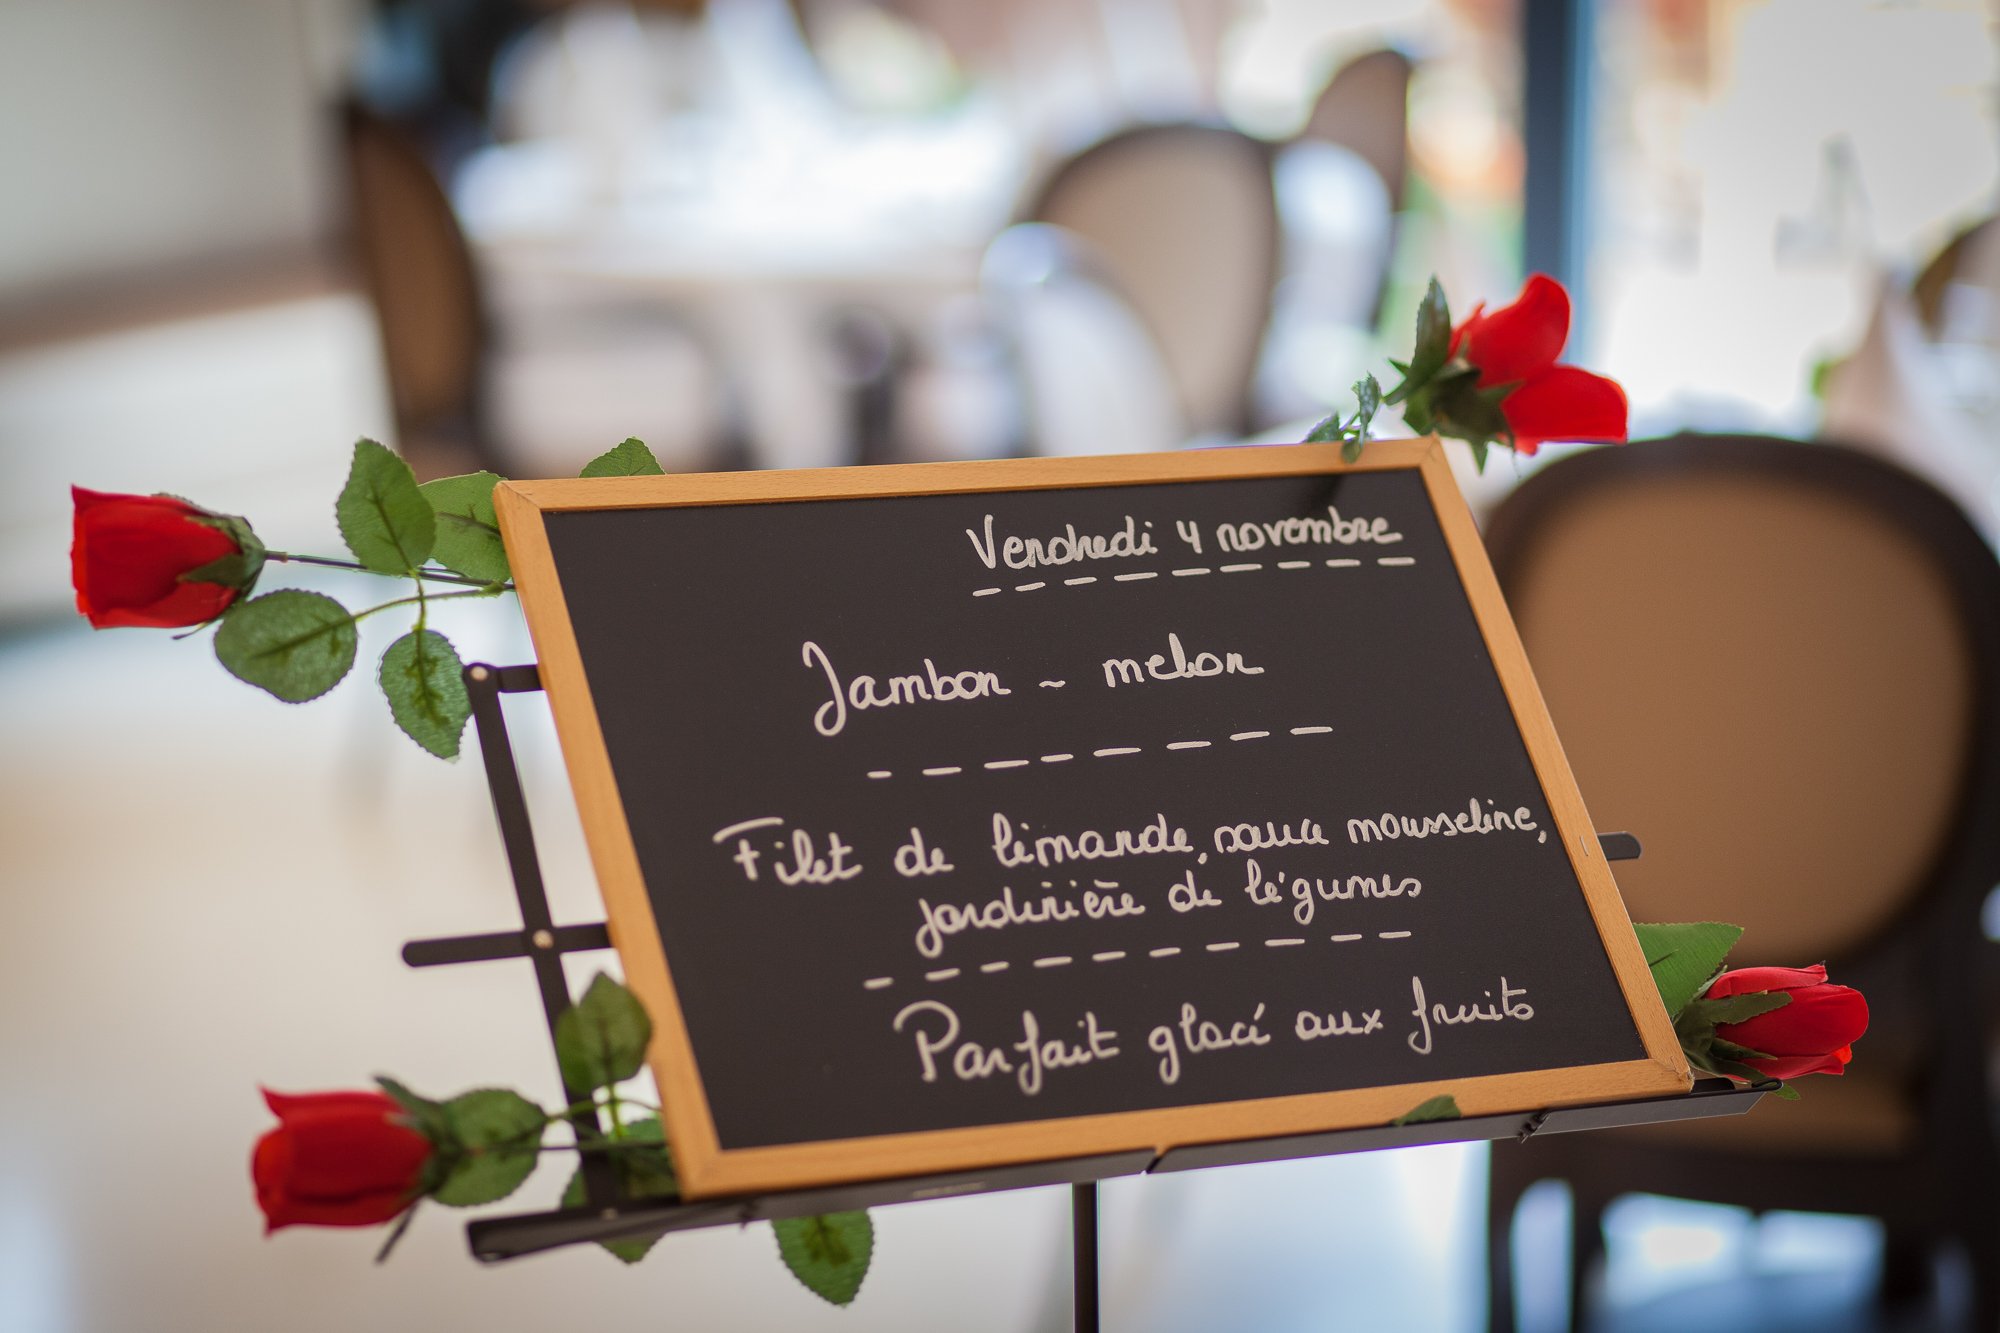 Vendredi 4 novembre
Jambon ~ melon
Filet de limande, sauce mousseline,
jardinière de légumes
Parfait glacé aux fruits